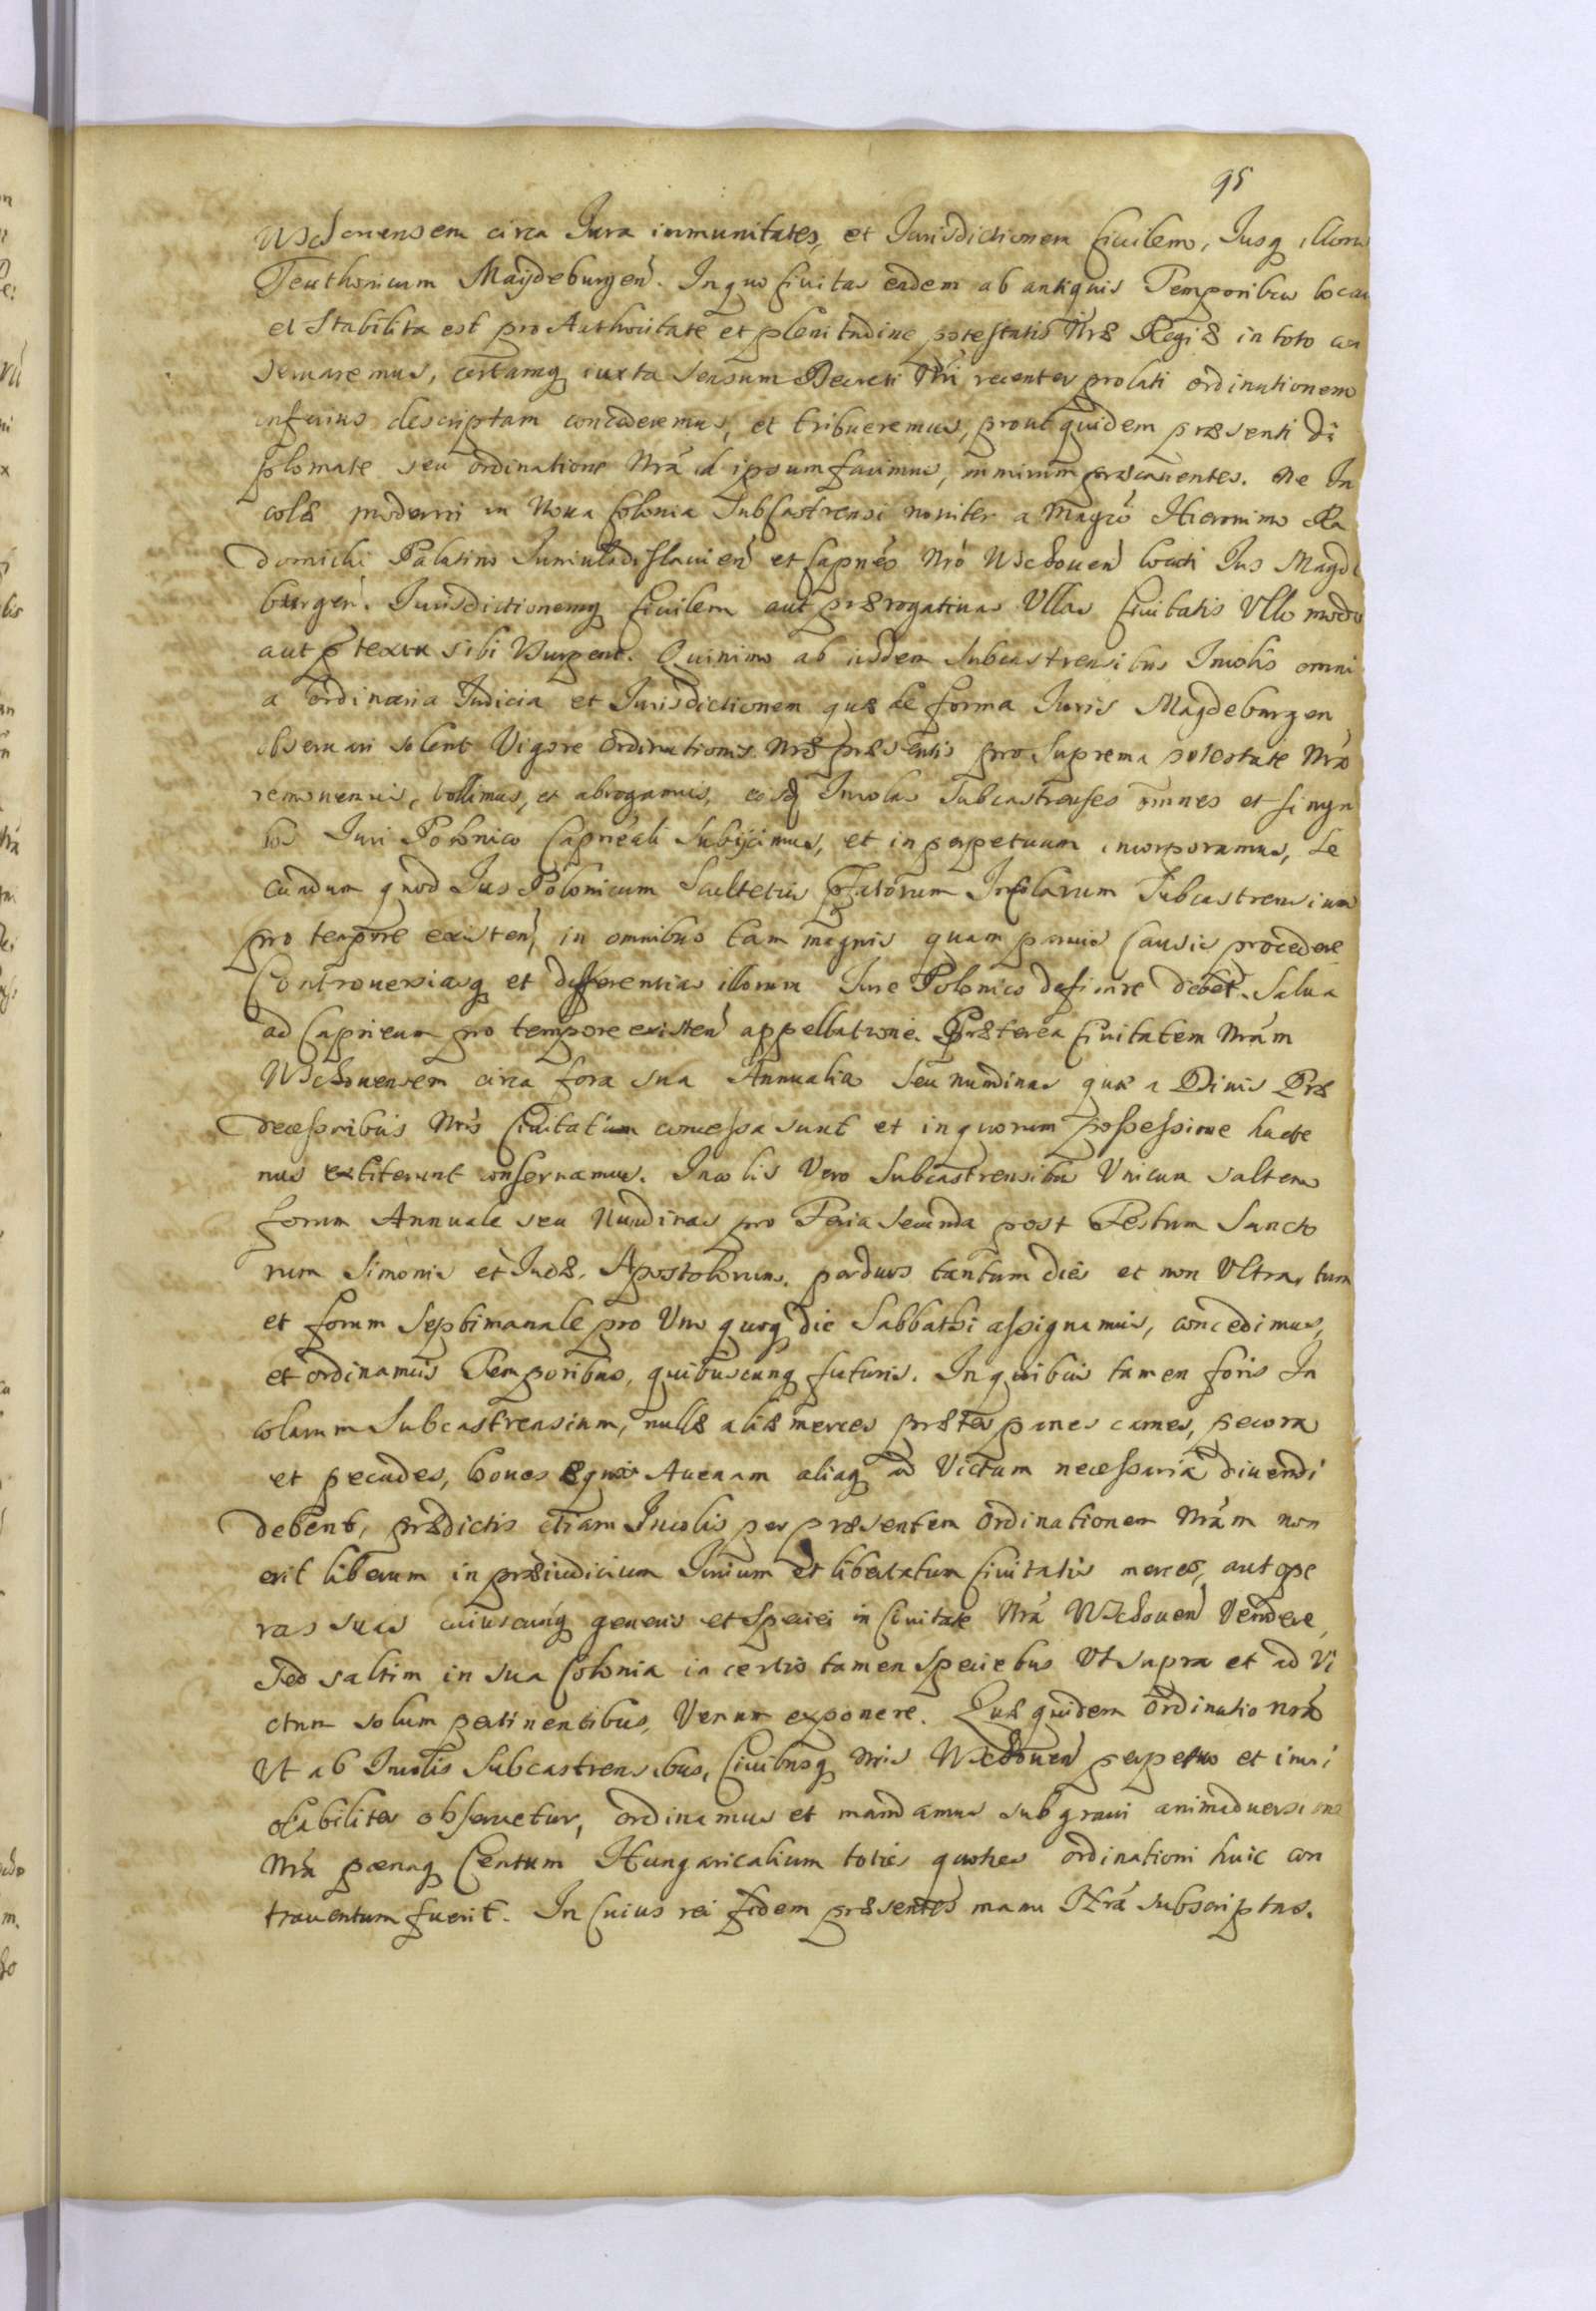 95
Wschouensem circa Iura immunitates, et Iurisdictionem Ciuilem, Iusq illorum
Teuthonicum Maydeburgen. In quo Ciuitas eadem ab antiquis Temporibus locata
et Stabilita est pro Authoritate et plenitudine potestatis Nræ Regiæ in toto con
seruaremus, certamq iuxta sensum Decreti Nri recenter prolati ordinationem
inferius descriptam concederemus, et tribueremus, prout quidem præsenti di
plomate seu ordinatione Nrá id ipsum facimus, inmirum præcauentes. Ne In
colæ moderni in Noua Colonia SubCastrensi nouiter a Magco Hieronimo Ra
domicki Palatino Iuniuladislauien et Capneo Nró Wschouen locati Ius Magde
burgen. Iurisdictionemq Ciuilem aut prærogatiuas Ullas Ciuitatis Ullo modo
aut ptextu sibi Usurpent. Quinimo ab iisdem Subcastrensibus Incolis omni
a ordinaria Iudicia et Iurisdictionem quæ de forma Iuris Magdeburgen
obseruari solent Vigore Ordinationis Nræ præsentis pro Suprema potestate Nrá
remouemus, tollimus, et abrogamus, eosq Incolas Subcastrenses omnes et singu
los Iuri Polonico Capneali Subijcimus, et in perpetuum incorporamus, Se
cundum quod Ius Polonicum Scultetus pfatorum Incolarum Subcastrensium
pro tempore existen, in omnibus tam magnis quam paruis Causis procedere
Controuersiasq et differentias illorum Iure Polonico definire debet. Salua
ad Capneum pro tempore existen appellatione. Præterea Ciuitatem Nrám
Wschouensem circa fora sua Annualia Seu nundinas quæ a Diuis Præ
decessoribus Nris Ciuitatum concessa sunt et in quorum possessione hacte
nus extiterunt conseruamus. Incolis Vero Subcastrensibus Unicum saltem
forum Annuale seu Nundinas pro Feria Secunda post Festum Sancto
rum Simonis et Iudæ. Apostolorum. per duos tantum dies et non Ultra, tum
et forum Septimanale pro Uno quoq die Sabbathi assignamus, concedimus,
et ordinamus Temporibus, quibuscunq futuris. In quibus tamen foris In
colarum Subcastrensium, nullæ aliæ merces præter panes carnes, pecora
et pecudes, boues equos Auenam aliaq ad Victum necessaria diuendi
debent, prædictis etiam Incolis per præsentem Ordinationem Nrám non
erit liberum in præiudicium Iurium et libertatum Ciuitatis merces, aut ope
ras suas cuiuscunq generis et Speciei in Ciuitate Nrá Wschouen Vendere,
Sed saltim in sua Colonia in certis tamen speciebus Ut supra et ad Vi
ctum solum pertinentibus, Venum exponere. Quæ quidem Ordinatio nrá
Ut ab Incolis Subcastrensibus, Ciuibusq Nris Wschouen perpetuo et inui
olabiliter obseruetur, ordinamus et mandamus sub graui animaduersione
Nrá pœnaq Centum Hungaricalium toties quoties ordinationi huic con
trauentum fuerit. In Cuius rei fidem præsentes manu Nrá subscriptas.